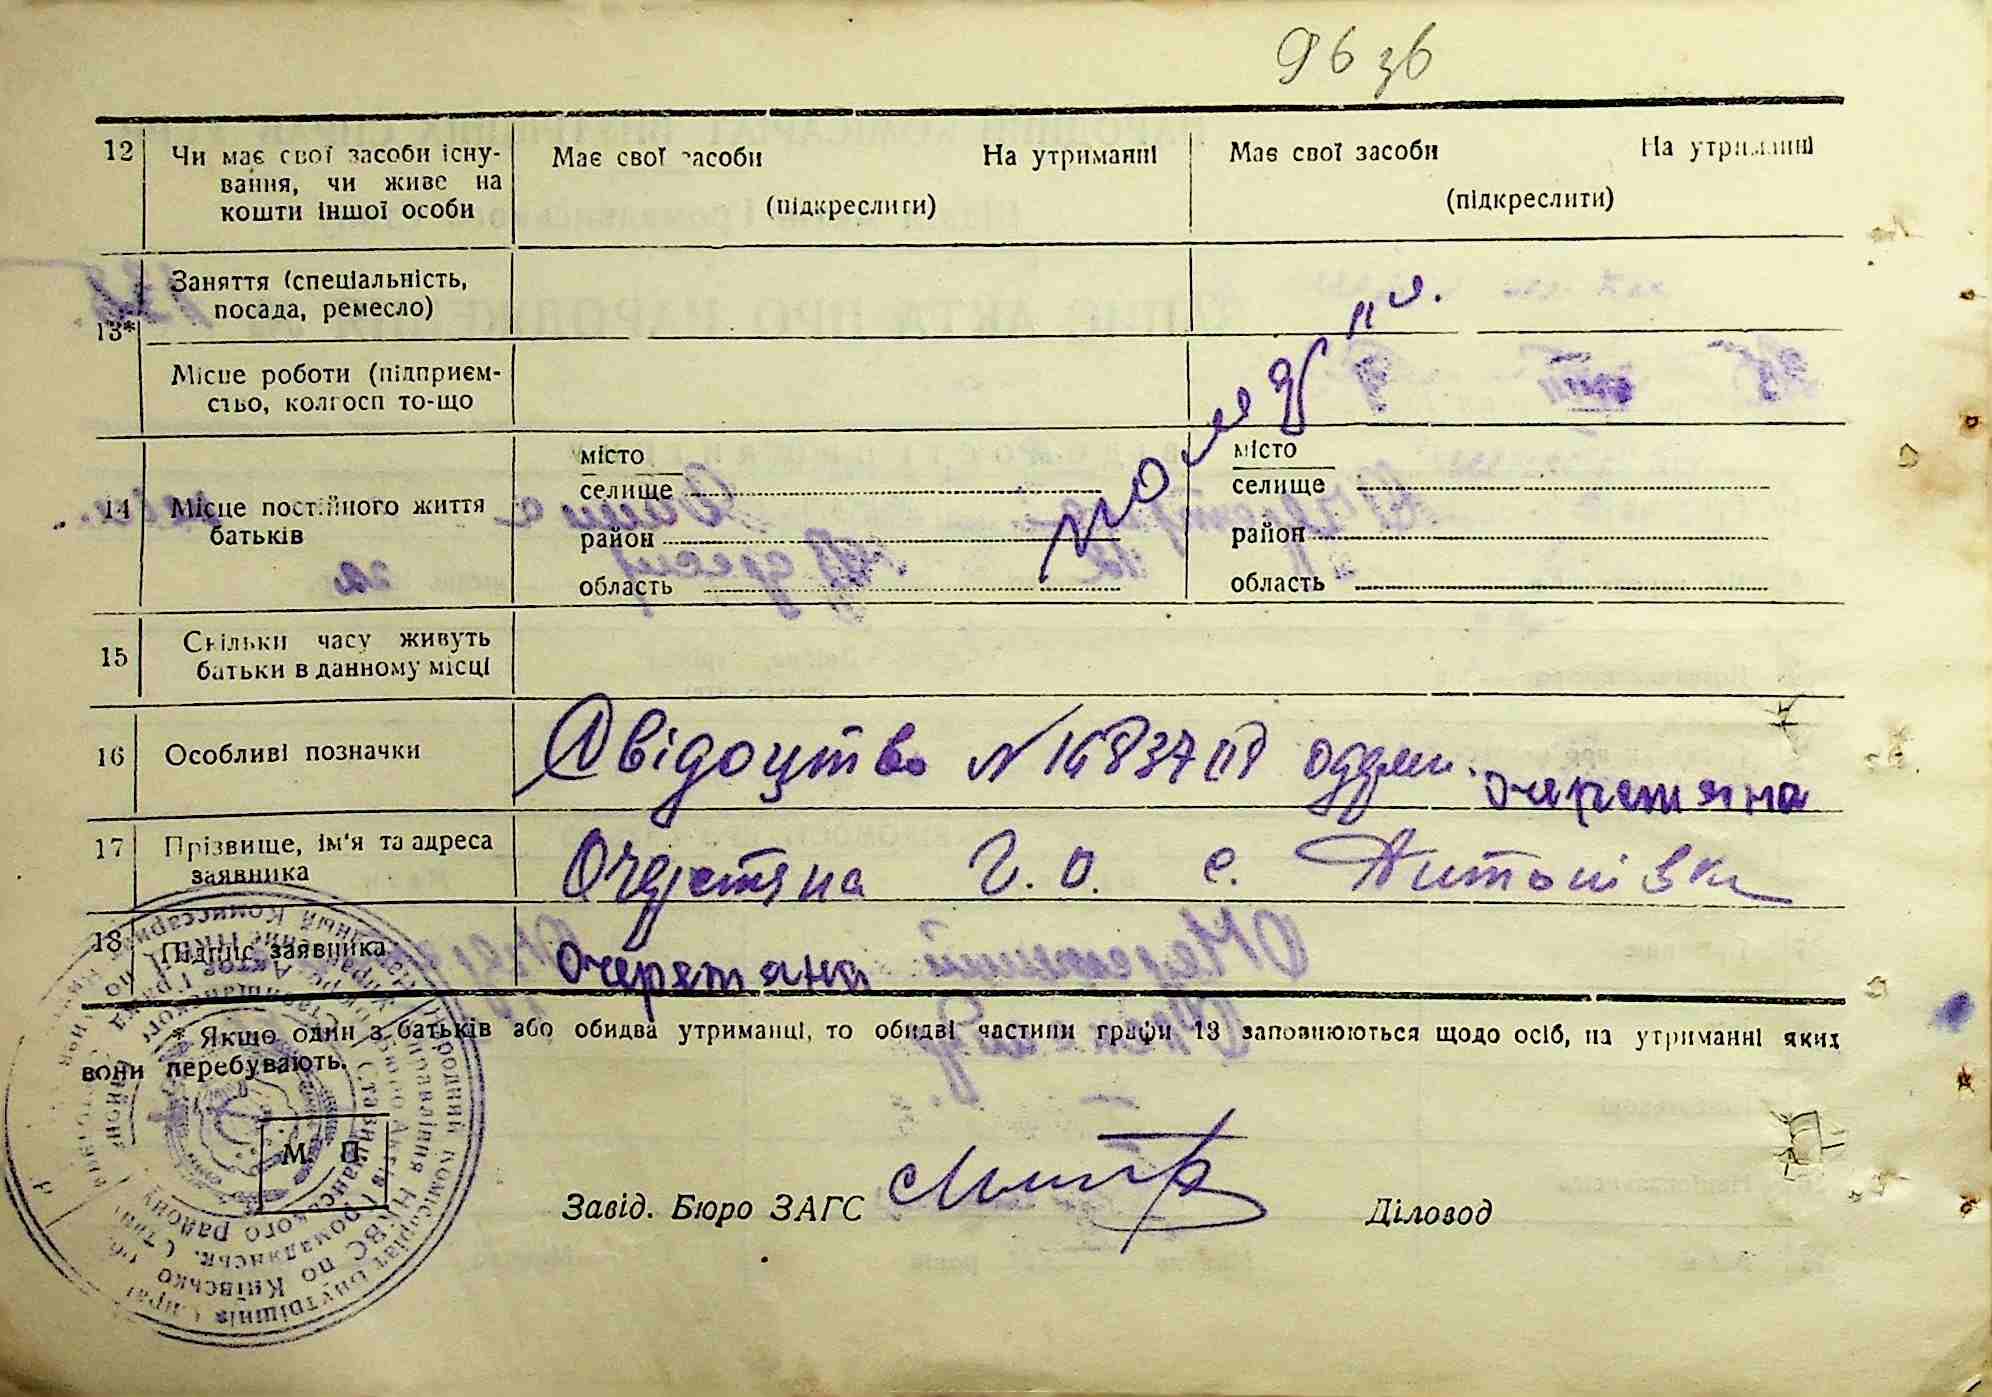 96 зв
12 Чи має свої засоби існу-
вання, чи живе на
кошти іншої особи
Має свої засоби На утриманні
(підкреслити)
Має свої засоби На утриманні
(підкреслити)
13* Заняття (спеціальність,
посада, ремесло)
Місце роботи (підприєм-
ство, колгосп то-що
14 Місце постійного життя
батьків
місто
селище
район
область
місто
селище
район
область
15 Скільки часу живуть
батьки в данному місці
16 Особливі позначки
Свідоцтво №
очеретяна
17 Прізвище, ім'я та адреса
заявника
Очеретяна Г. О. с. Антонівка
18 Підпис заявника
очеретяна
* Якщо один з батьків або обидва утриманці, то обидві частини графи 13 заповнюються щодо осіб, на утриманні яких
вони перебувають.
М. П.
Завід. Бюро ЗАГС
Діловод